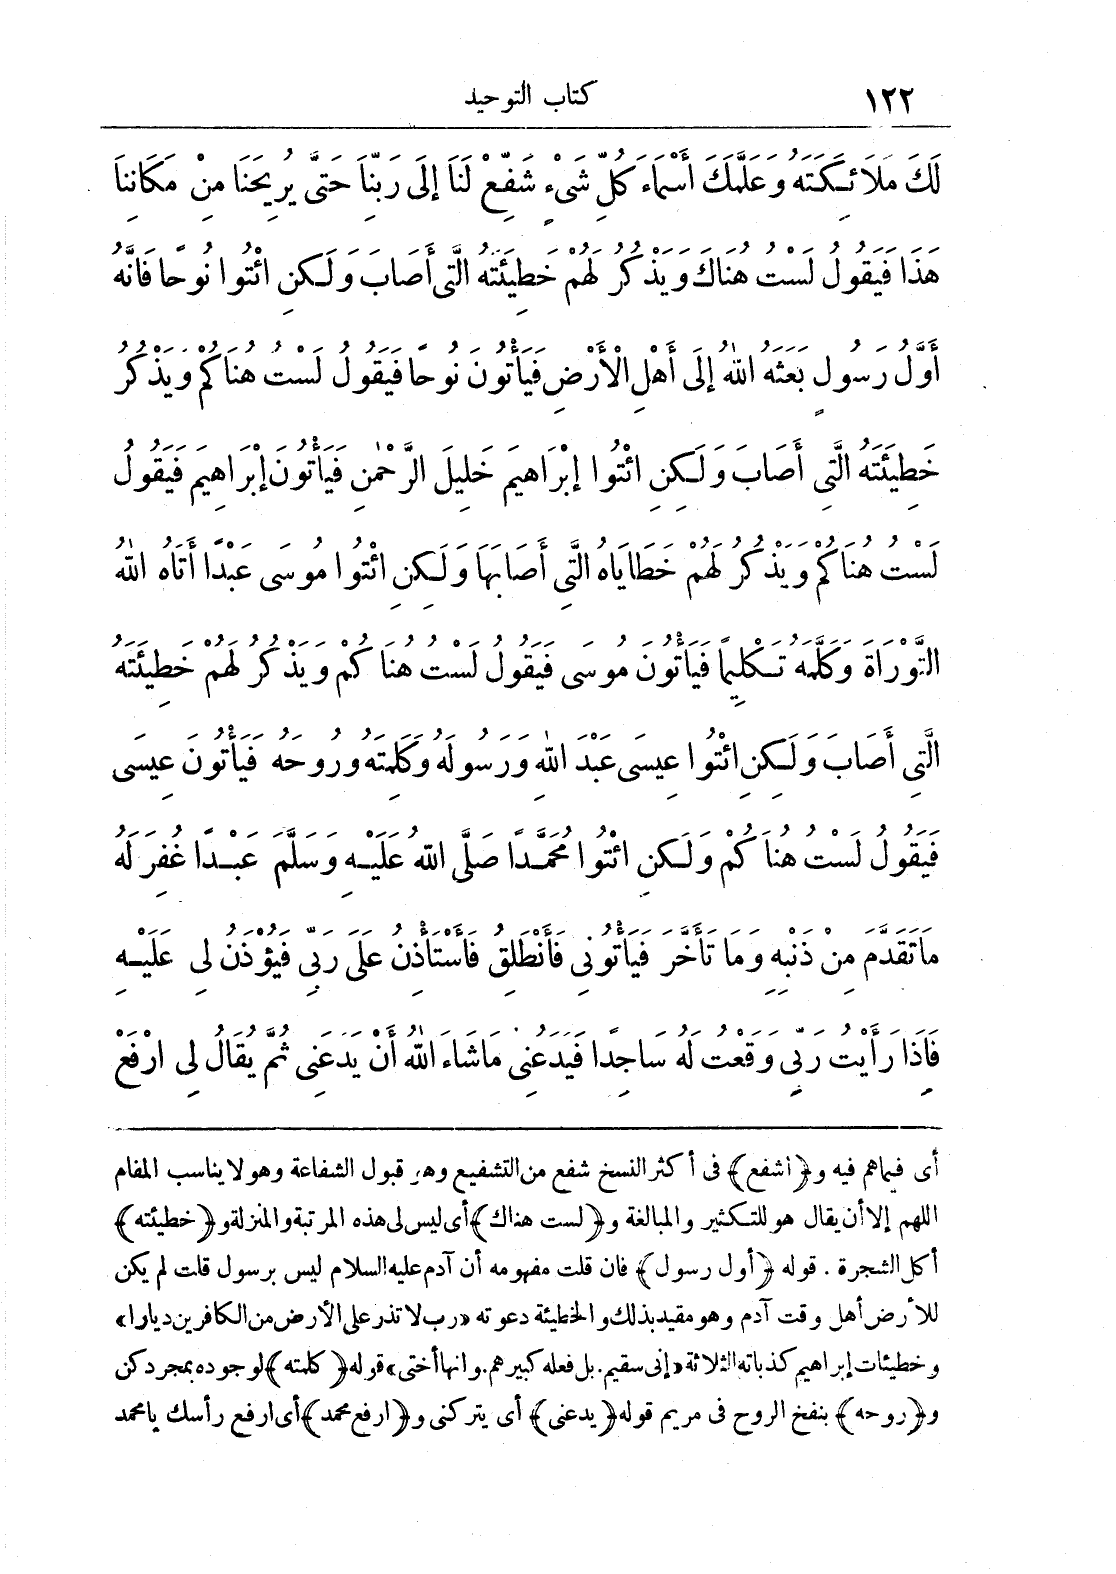 ١٢٢ كتاب التوحيد
لَكَ مَلَائِكَتَهُ وَعَلَّمَكَ أَسْمَاءَ كُلِّ شَيْءٍ شَفِّعْ لَنَا إِلَى رَبِّنَا حَتَّى يُرِيحَنَا مِنْ مَكَانِنَا
هَذَا فَيَقُولُ لَسْتُ هُنَاكَ وَيَذْكُرُ لَهُمْ خَطِيئَتَهُ الَّتِي أَصَابَ وَلَكِنِ ائْتُوا نُوحًا فَإِنَّهُ
أَوَّلُ رَسُولٍ بَعَثَهُ اللهُ إِلَى أَهْلِ الْأَرْضِ فَيَأْتُونَ نُوحًا فَيَقُولُ لَسْتُ هُنَاكُمْ وَيَذْكُرُ
خَطِيئَتَهُ الَّتِي أَصَابَ وَلَكِنِ ائْتُوا إِبْرَاهِيمَ خَلِيلَ الرَّحْمٰنِ فَيَأْتُونَ إِبْرَاهِيمَ فَيَقُولُ
لَسْتُ هُنَاكُمْ وَيَذْكُرُ لَهُمْ خَطَايَاهُ الَّتِي أَصَابَهَا وَلَكِنِ ائْتُوا مُوسَى عَبْدًا أَتَاهُ اللهُ
التَّوْرَاةَ وَكَلَّمَهُ تَكْلِيمًا فَيَأْتُونَ مُوسَى فَيَقُولُ لَسْتُ هُنَاكُمْ وَيَذْكُرُ لَهُمْ خَطِيئَتَهُ
الَّتِي أَصَابَ وَلَكِنِ ائْتُوا عِيسَى عَبْدَ اللهِ وَرَسُولَهُ وَكَلِمَتَهُ وَرُوحَهُ فَيَأْتُونَ عِيسَى
فَيَقُولُ لَسْتُ هُنَاكُمْ وَلَكِنِ ائْتُوا مُحَمَّدًا صَلَّى اللهُ عَلَيْهِ وَسَلَّمَ عَبْدًا غُفِرَ لَهُ
مَا تَقَدَّمَ مِنْ ذَنْبِهِ وَمَا تَأَخَّرَ فَيَأْتُونِي فَأَنْطَلِقُ فَأَسْتَأْذِنُ عَلَى رَبِّي فَيُؤْذَنُ لِي عَلَيْهِ
فَإِذَا رَأَيْتُ رَبِّي وَقَعْتُ لَهُ سَاجِدًا فَيَدَعُنِي مَا شَاءَ اللهُ أَنْ يَدَعَنِي ثُمَّ يُقَالُ لِي ارْفَعْ
أى فيما هم فيه و﴿اشفع﴾ فى أكثر النسخ شفع من التشفيع وهو قبول الشفاعة وهو لا يناسب المقام
اللهم إلا أن يقال هو للتكثير والمبالغة و﴿لست هناك﴾ أى ليس لى هذه المرتبة والمنزلة و﴿خطيئته﴾
أكل الشجرة . قوله ﴿أول رسول﴾ فان قلت مفهومه أن آدم عليه السلام ليس برسول قلت لم يكن
للأرض أهل وقت آدم وهو مقيد بذلك والخطيئة دعوته «رب لا تذر على الأرض من الكافرين ديارا»
وخطيئات إبراهيم كذباته الثلاثة «إنى سقيم . بل فعله كبيرهم . وانها أختى» قوله ﴿كلمته﴾ لوجوده بمجرد كن
و﴿روحه﴾ بنفخ الروح فى مريم قوله ﴿يدعنى﴾ أى يتركنى و﴿ارفع محمد﴾ أى ارفع رأسك يا محمد